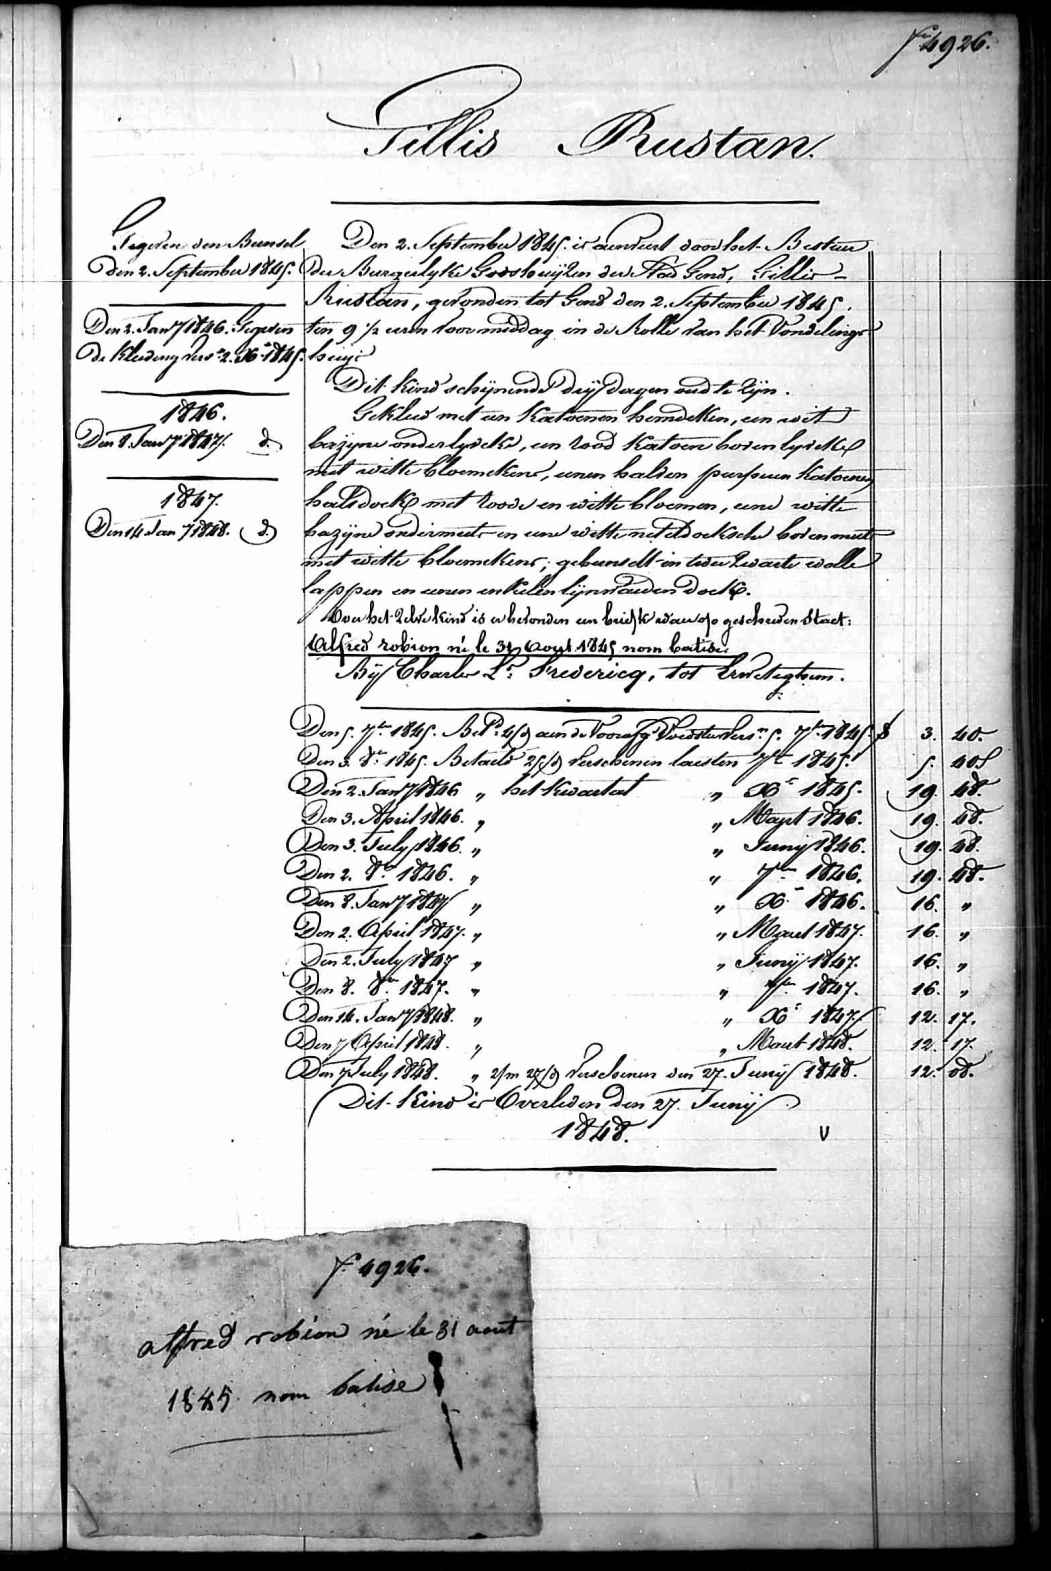 fo 4926.
Gillis Rustan.
Gegeven den Bunsel
den 2. September 1845.
Den 2. Jany 1846. Gegeven
de Kleeding vers.n 2. Xb.r 1845.
1846.
Den 8. Jany 1847. d.
1847.
Den 14 Jany 1848. d.
Den 2. September 1845. is aenveert door het Bestuer
der Burgerlyke Godshuijzen der Stad Gend, Gillis
Rustan, gevonden tot Gend den 2. September 1845.
ten 9 1/2 uren voormiddag in de Rolle van het Vondelinge
huijs
Dit kind schijnende drij dagen oud te zijn.
Gekleed met een Katoenen hemdeken, een wit
bazijne onderlyveke, een rood Katoene bovenlyveke
met witte bloemekens, eenen halven purpuren Katoenen
halsdoek met roode en witte bloemen, eene witte
bazijne ondermuts en eene witte neteldoeksche bovenmuts
met witte bloemekens; gebunselt in twee zwarte wolle
lappen en eenen enkelen lijnwaeden doek.
Voor het zelve kind is er bevonden een briefke waer op geschreven staet:
Alfred robion né le 31 Aout 1845 nom batise
Bij Charles L.s Fredericq, tot Erweteghem.
Den 5. 7.ber 1845. Bet.d 4/d aen de Voorafg Voedster vers.n 5. 7.ber 1845. f 3. 40
Den 3. 8.r 1845. Betaeld 25/d verschenen laesten 7.ber 1845. 5. 40
Den 2. Jany 1846 " het kwartael " Xb.r 1845. 19. 48
Den 3. April 1846. " " Maert 1846. 19. 48.
Den 3. July 1846. " " Junij 1846. 19. 48.
Den 2. 8.r 1846. " " 7.ber 1846. 19. 48.
Den 8. Jany 1847 " " Xb.r 1846. 16. "
Den 2. April 1847. " " Maert 1847. 16. "
Den 2. July 1847 " " Junij 1847. 16. "
Den 8. 8.r 1847. " " 7.ber 1847. 16. "
Den 14. Jany 1848. " " Xb.r 1847 12. 17.
Den 7 April 1848. " " Maert 1848. 12. 17.
Den 7 July 1848. " 2/m 27/d verschenen den 27. Junij 1848. 12. 08.
Dit kind is Overleden den 27. Junij
1848. V
fo 4926.
alfred robion né le 31 aout
1845 nom batise